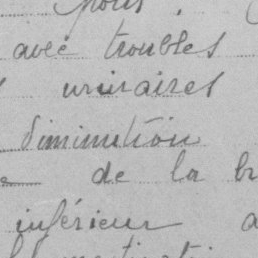 pour
avec troubles
urinaires
diminution
de la br
inférieur a